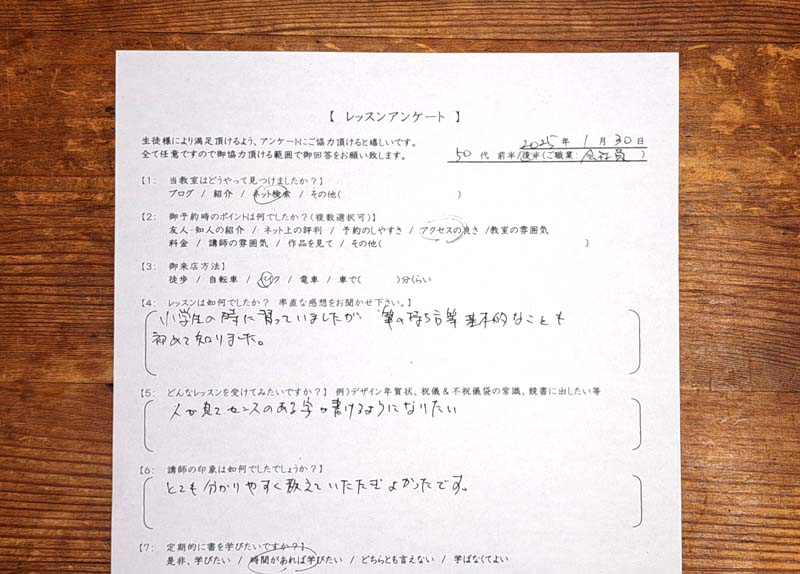 【 レッスンアンケート 】
生徒様により満足頂けるよう、アンケートにご協力頂けると嬉しいです。
2025年 1月 30日
全て任意ですので御協力頂ける範囲で御回答をお願い致します。
50代 前半/後半(ご職業: 会社員 )
【1: 当教室はどうやって見つけましたか?】
ブログ / 紹介 / ネット検索 / その他( )
【2: 御予約時のポイントは何でしたか?(複数選択可)】
友人・知人の紹介 / ネット上の評判 / 予約のしやすさ / アクセスの良さ /教室の雰囲気
料金 / 講師の雰囲気 / 作品を見て / その他( )
【3: 御来店方法】
徒歩 / 自転車 / バイク / 電車 / 車で( )分くらい
【4: レッスンは如何でしたか? 率直な感想をお聞かせ下さい。】
小学生の時に習っていましたが 筆の持ち方等 基本的なことも
初めて知りました。
【5: どんなレッスンを受けてみたいですか?】 例)デザイン年賀状、祝儀&不祝儀袋の常識、競書に出したい等
人が見てセンスのある字が書けるようになりたい
【6: 講師の印象は如何でしたでしょうか?】
とても分かりやすく教えていただきよかったです。
【7: 定期的に書を学びたいですか?】
是非、学びたい / 時間があれば学びたい / どちらとも言えない / 学ばなくてよい